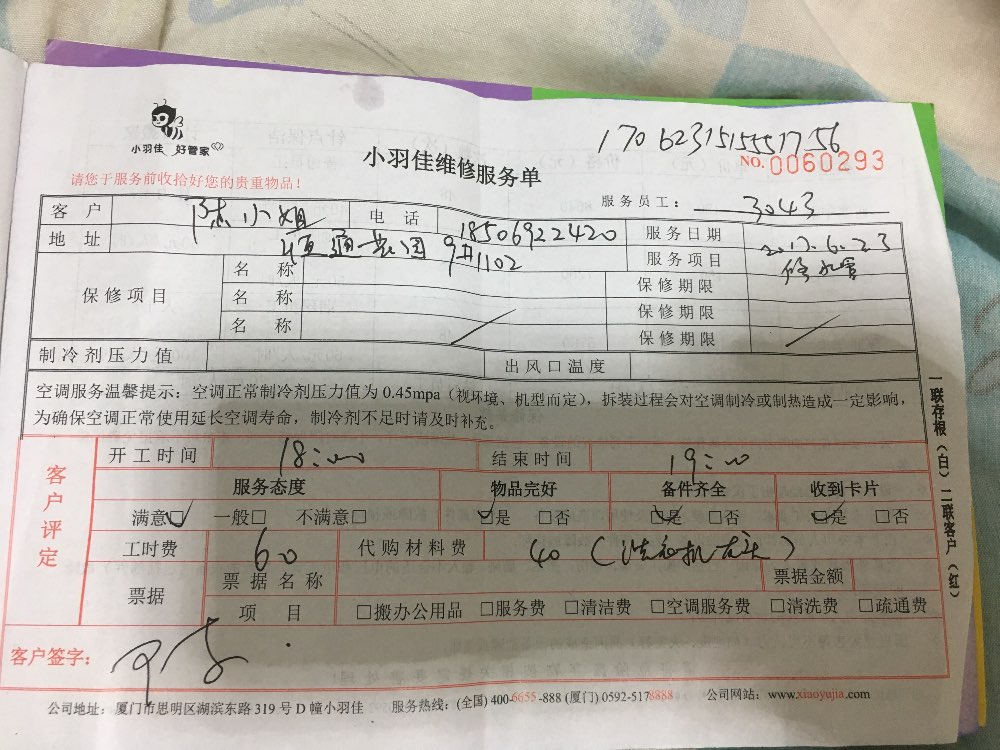 小羽佳 好管家
1706231515551756
小羽佳维修服务单
NO. 0060293
请您于服务前收拾好您的贵重物品！
服务员工： 3043
客户 陈小姐 电话 18506922420 服务日期 2017.6.23
地址 通 9#1102 服务项目 修水管
保修项目 名称 保修期限
名称 保修期限
名称 保修期限
制冷剂压力值 出风口温度
空调服务温馨提示：空调正常制冷剂压力值为 0.45mpa（视环境、机型而定），拆装过程会对空调制冷或制热造成一定影响，
为确保空调正常使用延长空调寿命，制冷剂不足时请及时补充。
一联存根（白） 二联客户（红）
客户评定
开工时间 18:00 结束时间 19:00
服务态度 物品完好 备件齐全 收到卡片
满意☑ 一般□ 不满意□ ☑是 □否 ☑是 □否 ☑是 □否
工时费 60 代购材料费 40（洗衣机龙头）
票据 票据名称 票据金额
项目 □搬办公用品 □服务费 □清洁费 □空调服务费 □清洗费 □疏通费
客户签字：
公司地址：厦门市思明区湖滨东路 319 号 D 幢小羽佳 服务热线：(全国) 400-6655-888 (厦门) 0592-5178888 公司网站：www.xiaoyujia.com